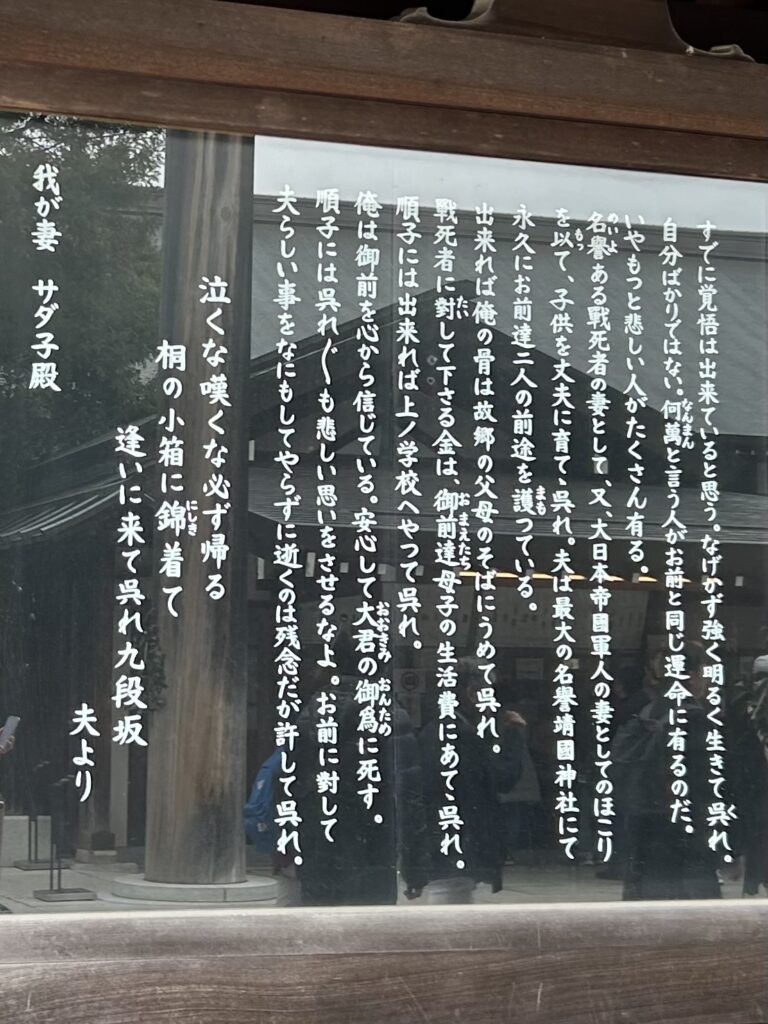 すでに覚悟は出来ていると思う。なげかず強く明るく生きて呉れ。
自分ばかりではない。何萬と言う人がお前と同じ運命に有るのだ。
いやもっと悲しい人がたくさん有る。
名譽ある戰死者の妻として、又、大日本帝國軍人の妻としてのほこり
を以て、子供を丈夫に育てゝ呉れ。夫は最大の名譽靖國神社にて
永久にお前達二人の前途を護つている。
出来れば俺の骨は故郷の父母のそばにうめて呉れ。
戰死者に對して下さる金は、御前達母子の生活費にあてゝ呉れ。
順子には出来れば上ノ学校へやつて呉れ。
俺は御前を心から信じている。安心して大君の御爲に死す。
順子には呉れ〲も悲しい思いをさせるなよ。お前に對して
夫らしい事をなにもしてやらずに逝くのは残念だが許して呉れ。
泣くな嘆くな必ず帰る
桐の小箱に錦着て
逢いに来て呉れ九段坂
夫より
我が妻 サダ子殿